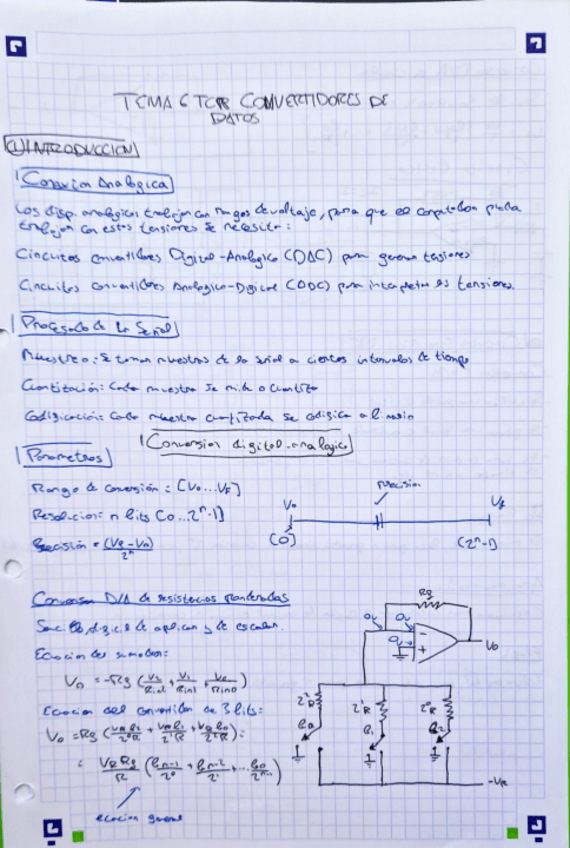 TEMA 6 TCR CONVERTIDORES DE
DATOS
① INTRODUCCION
Conexion Analogica
Los disp. analogicos trabajan con rangos de voltaje, para que el computador pueda
trabajar con estas tensiones se necesita:
Circuitos convertidores Digital-Analogico (DAC) para generar tensiones
Circuitos convertidores Analogico-Digital (ADC) para interpretar las tensiones.
Procesado de la Señal
Muestreo: Se toman muestras de la señal a ciertos intervalos de tiempo
Cuantización: Cada muestra se mide o cuantiza
Codificación: Cada muestra cuantizada se codifica a binario
Conversion digital-analogico
Parametros
Rango de conversión: [V0...Vf]
Resolucion: n bits [0...2^n-1]
Precisión = (Vf-V0)/2^n
precision
V0
Vf
[0]
(2^n-1)
Conversor D/A de resistencias ponderadas
Sencillo, dificil de aplicar y de escalar.
Ecuacion del sumador:
V0 = -Rf (V2/Rin2 + V1/Rin1 + V0/Rin0)
Ecuacion del convertidor de 3 bits:
V0 = Rf (VR b2/2^0R + VR b1/2^1R + VR b0/2^2R) =
= VR Rf/R (bn-1/2^0 + bn-2/2^1 + ... b0/2^n-1)
ecuacion general
Rf
0v
0v
0v
-
+
V0
2^2R
2^1R
2^0R
b0
b1
b2
1
1
1
-VR